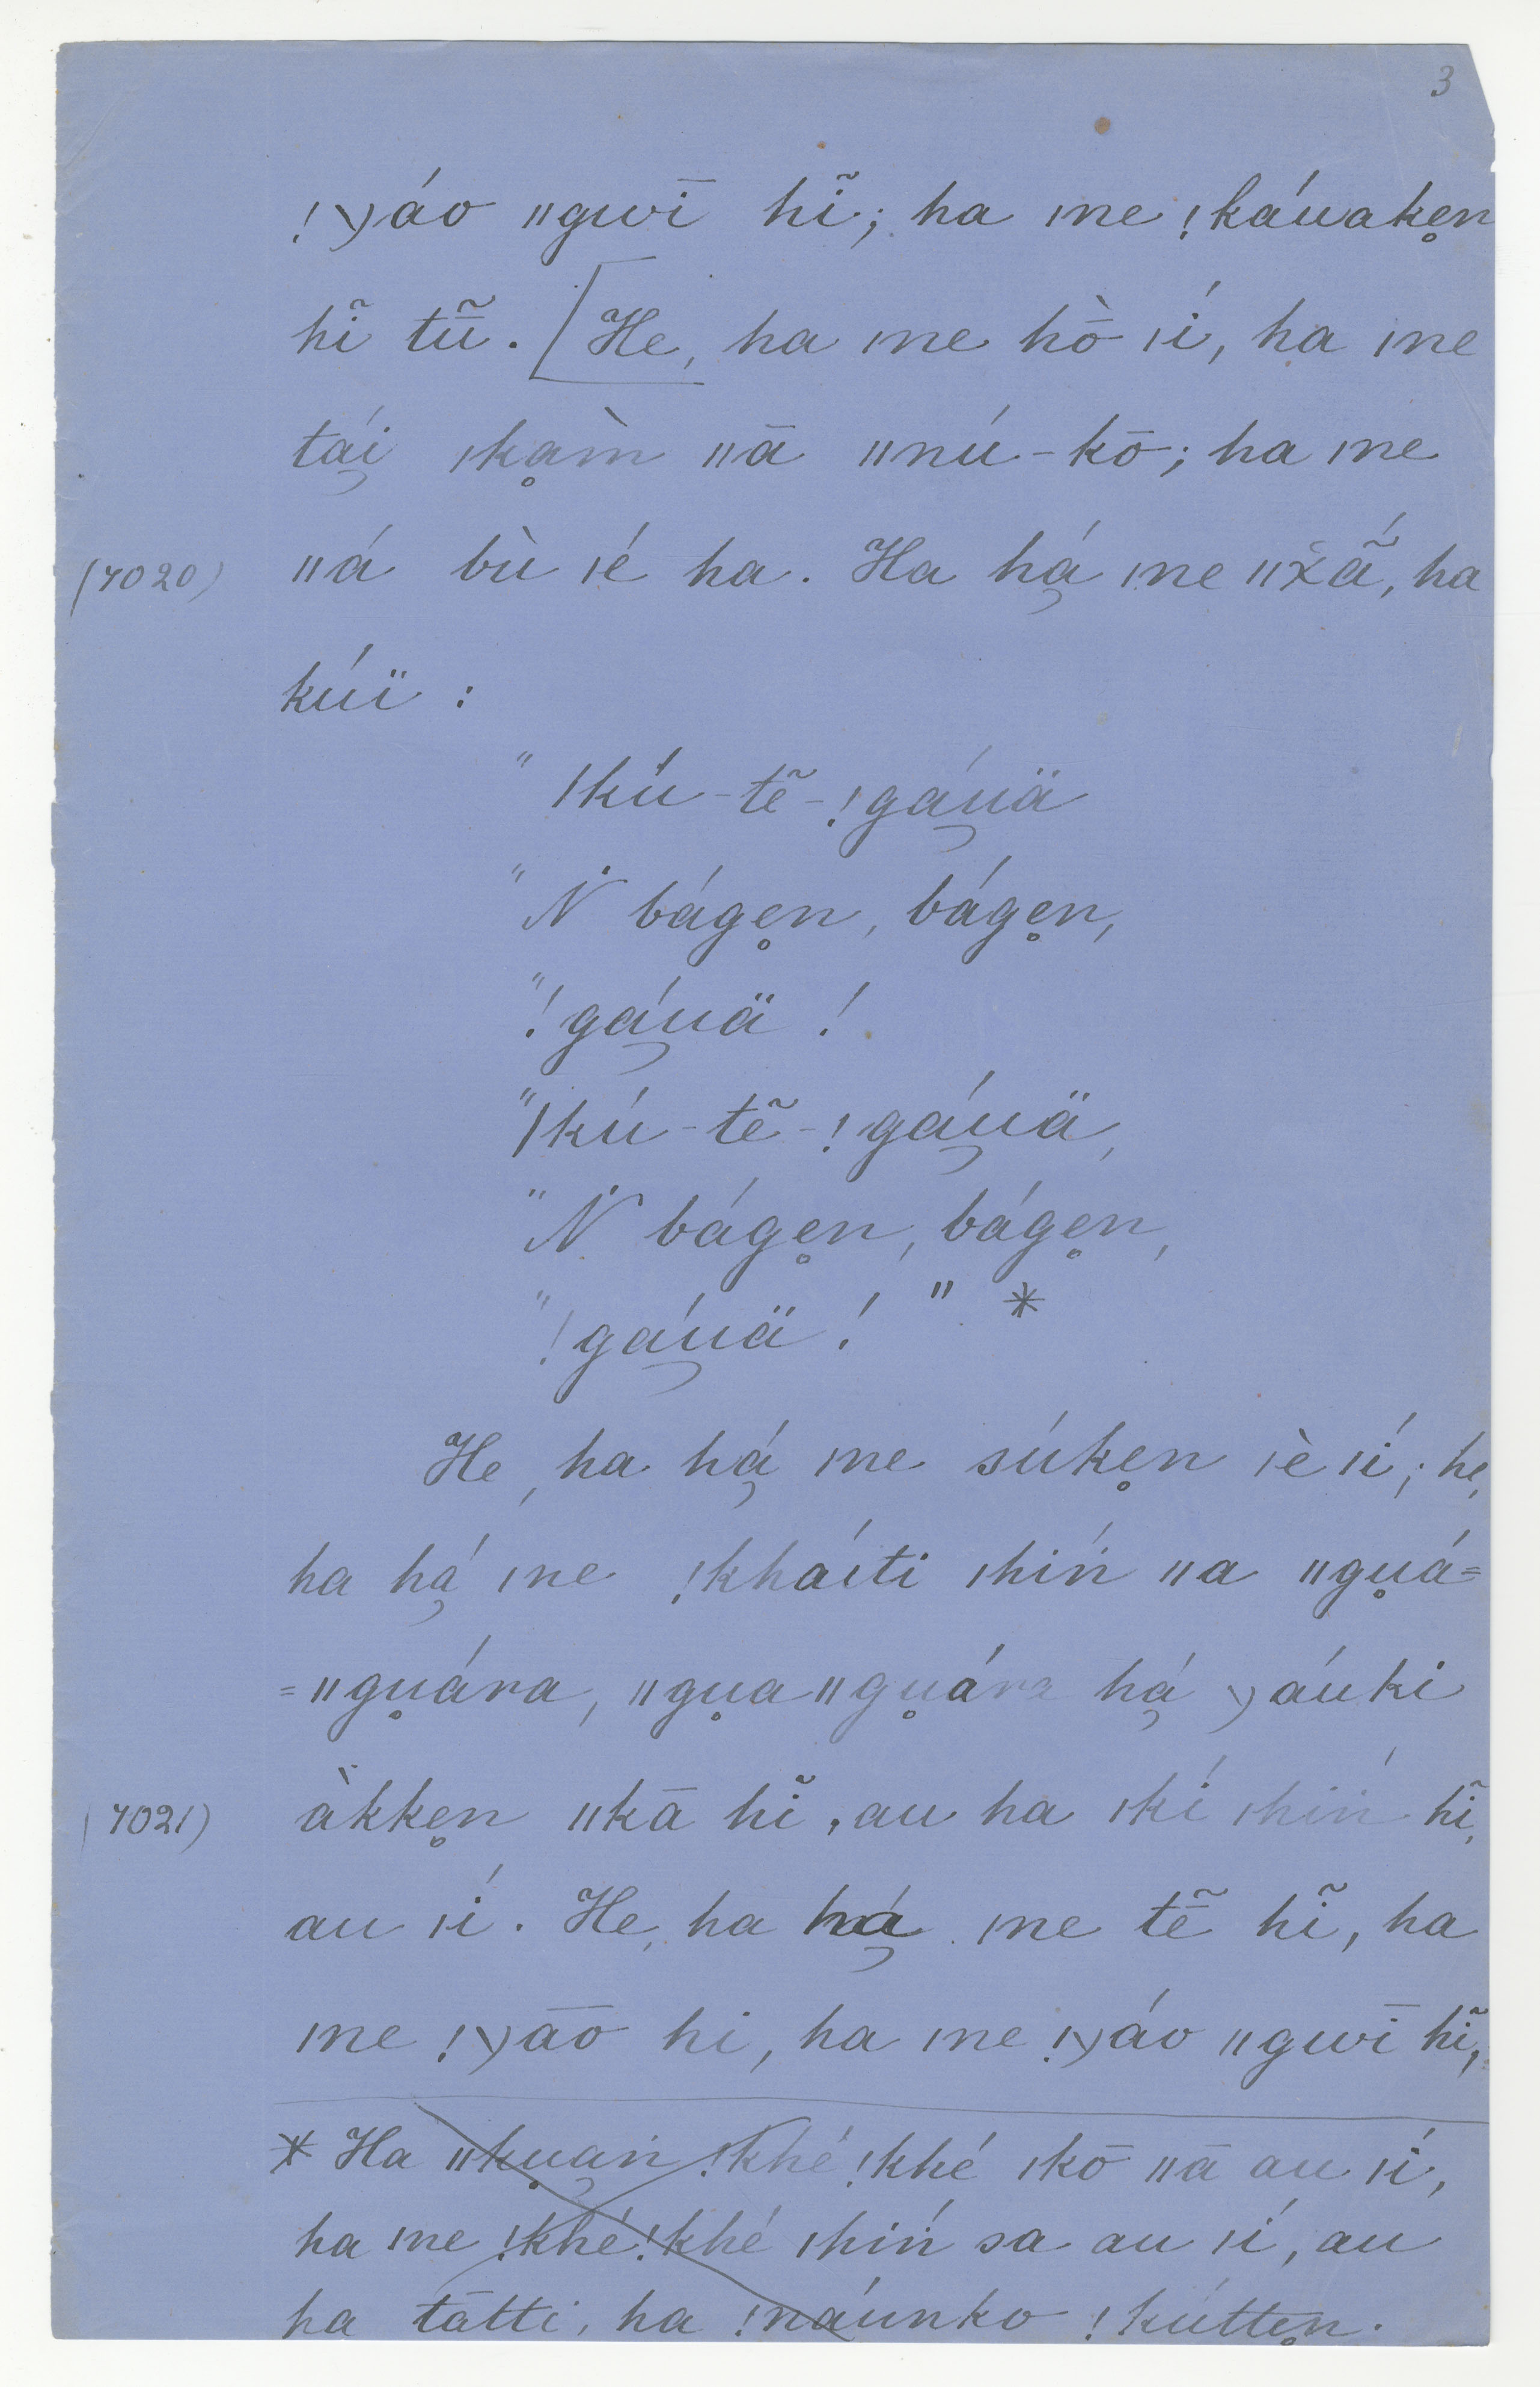 3
!χáo ǁgwī hĩ; ha ǀne !káuakẹn
hĩ tũ. [He, ha ǀne hò̄ ǀí, ha ǀne
tá̡i ǀkạm̀ ǁā ǁnú-kō; ha ǀne
(7020) ǁá bù ǀé ha. Ha há̡ ǀne ǁx̆ã́, ha
kúï :
" ǀkú-tẽ-!gá̡uä
" Ṅ bágẹn, bágẹn,
" !gá̡uä !
" ǀkú-tẽ-!gá̡uä,
" Ṅ bágẹn, bágẹn,
" !gá̡uä ! " *
He, ha há̡ ǀne súkẹn ǀè ǀí; he,
ha há̡ ǀne !kháiti ǀhiń ǁa ǁgụá=
=ǁgụára, ǁgụaǁgụára há̡ χáuki
àkkẹn ǁkā hĩ, au ha ǀkí ǀhiń hĩ,
(7021)
au ǀí. He, ha há̡ ǀne tẽ̄ hĩ, ha
ǀne !χāō hi, ha ǀne !χáo ǁgwī hĩ,
* Ha ǁkụa̡ṅ !khé !khé ǀkō ǁā au ǀí,
ha ǀne !khé !khé ǀhiń sa au ǀí, au
ha tātti, ha !náunko !kúttẹn.